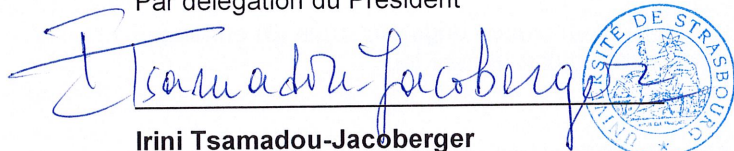 Par délégation du Président
I Tsamadou-Jacoberger
UNIVERSITÉ DE STRASBOURG
Irini Tsamadou-Jacoberger